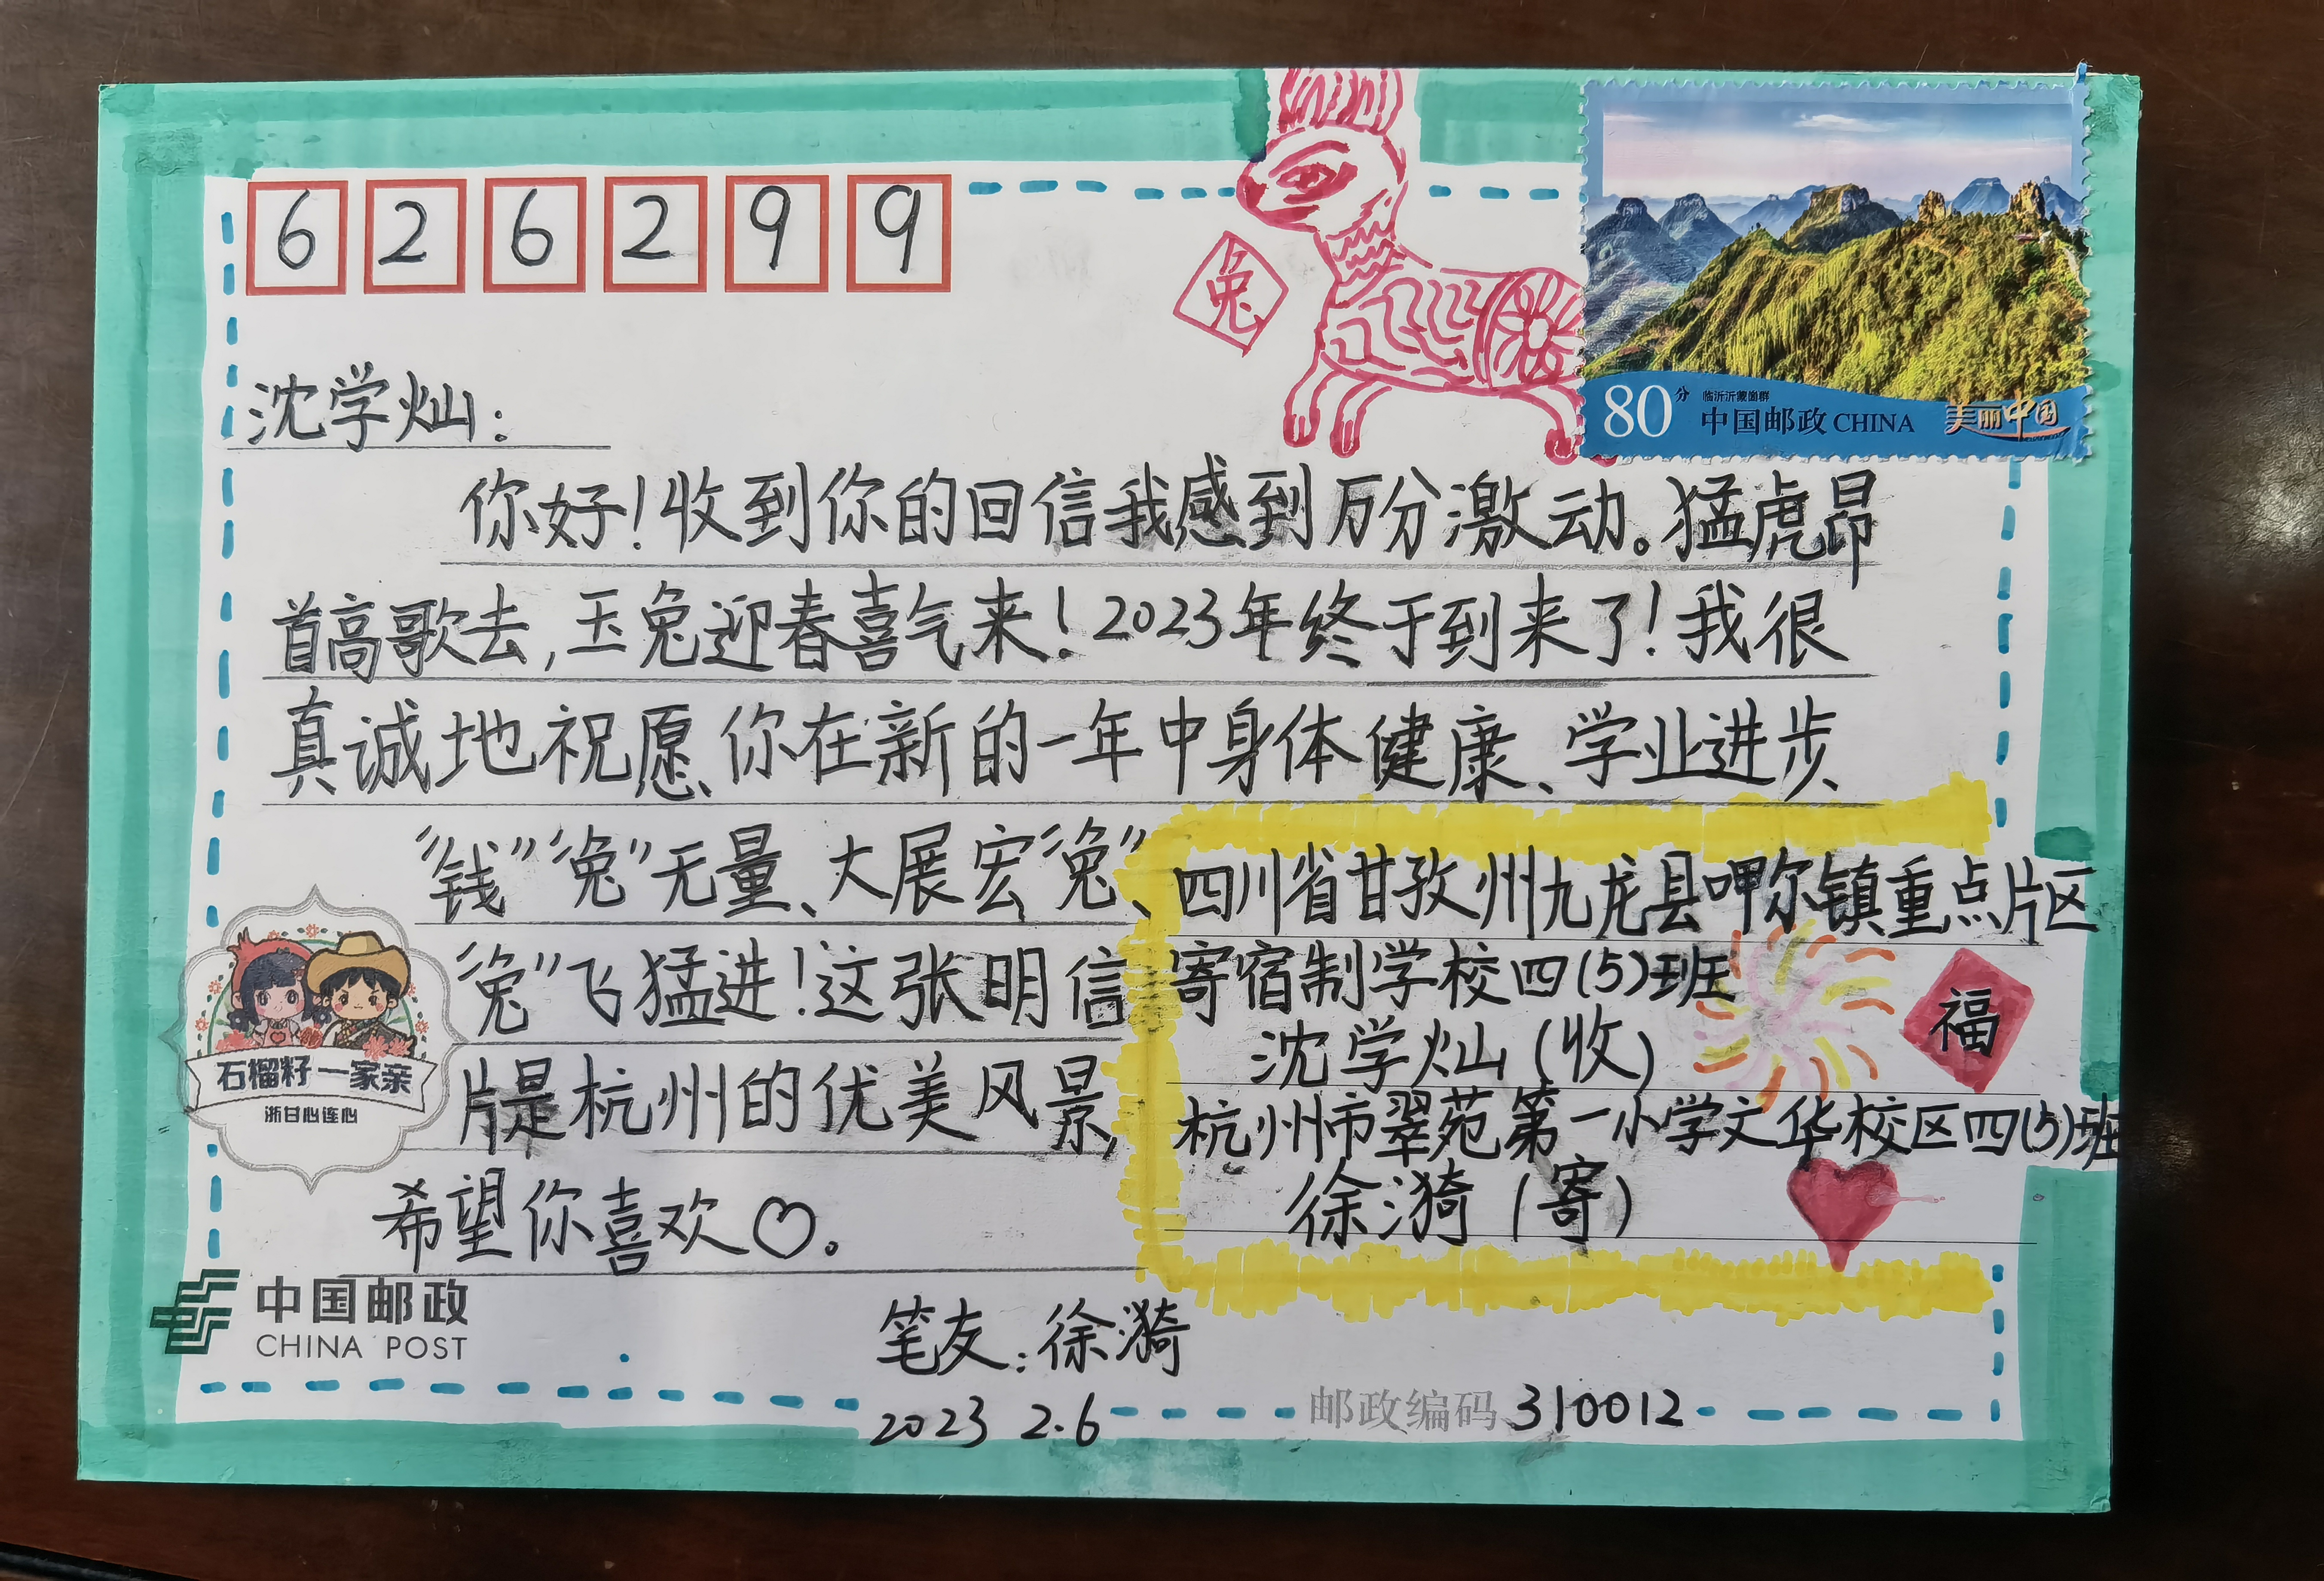 626299
兔
80分
临沂沂蒙崮群
中国邮政 CHINA
美丽中国
沈学灿：
你好！收到你的回信我感到万分激动。猛虎昂
首高歌去，玉兔迎春喜气来！2023年终于到来了！我很
真诚地祝愿你在新的一年中身体健康、学业进步、
“钱”“兔”无量、大展宏“兔”、
“兔”飞猛进！这张明信
片是杭州的优美风景，
希望你喜欢♡。
笔友：徐漪
2023 2.6
四川省甘孜州九龙县呷尔镇重点片区
寄宿制学校四(5)班
沈学灿(收)
杭州市翠苑第一小学文华校区四(5)班
徐漪(寄)
福
石榴籽一家亲
浙甘心连心
中国邮政
CHINA POST
邮政编码 310012